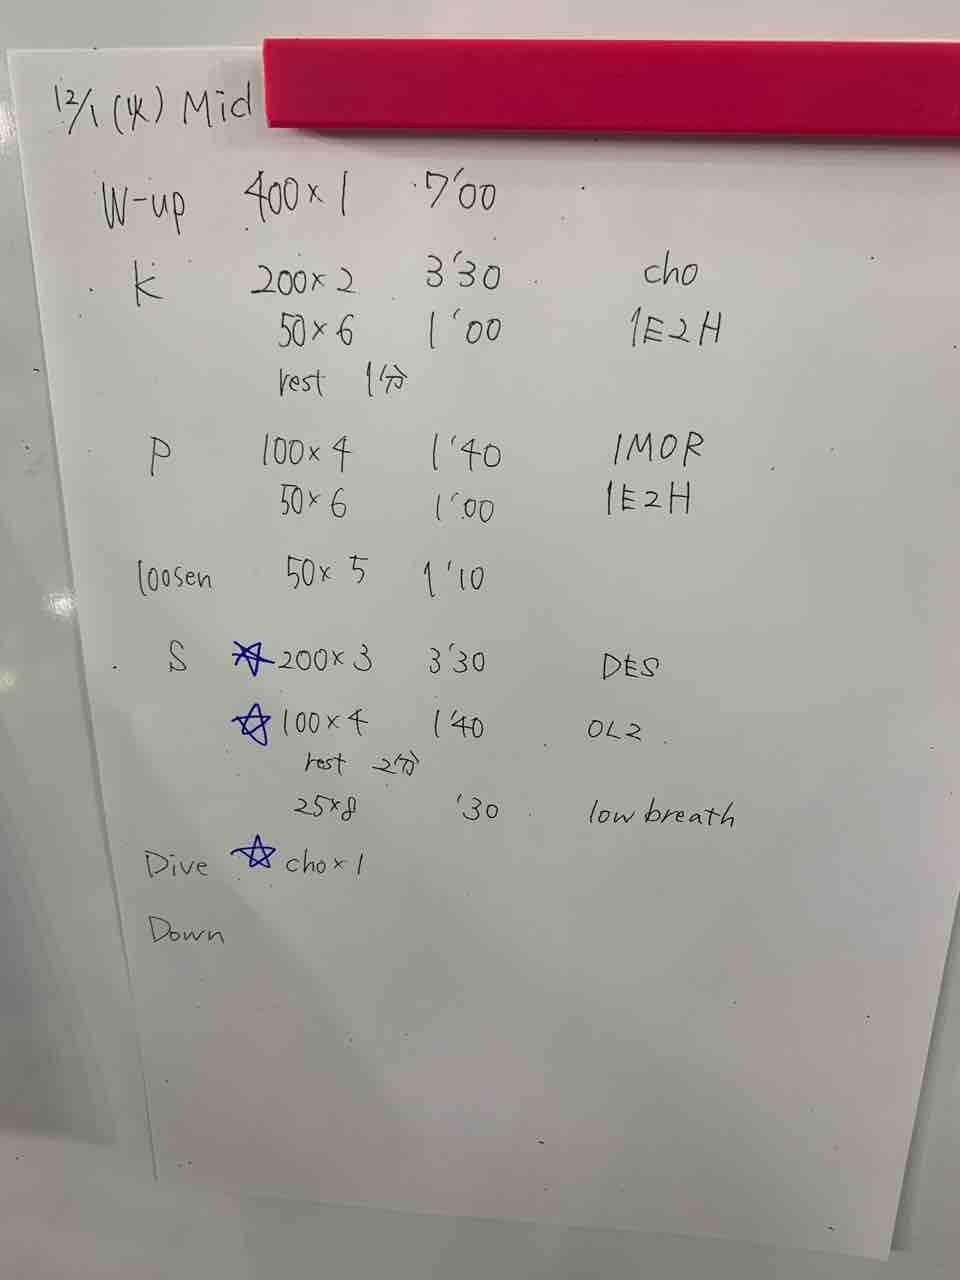 12/1 (火) Mid
W-up 400×1 7'00
K 200×2 3'30 cho
50×6 1'00 1E2H
rest 1分
P 100×4 1'40 1MOR
50×6 1'00 1E2H
loosen 50×5 1'10
S ☆ 200×3 3'30 DES
☆ 100×4 1'40 OL2
rest 2分
25×8 '30 low breath
Dive ☆ cho×1
Down